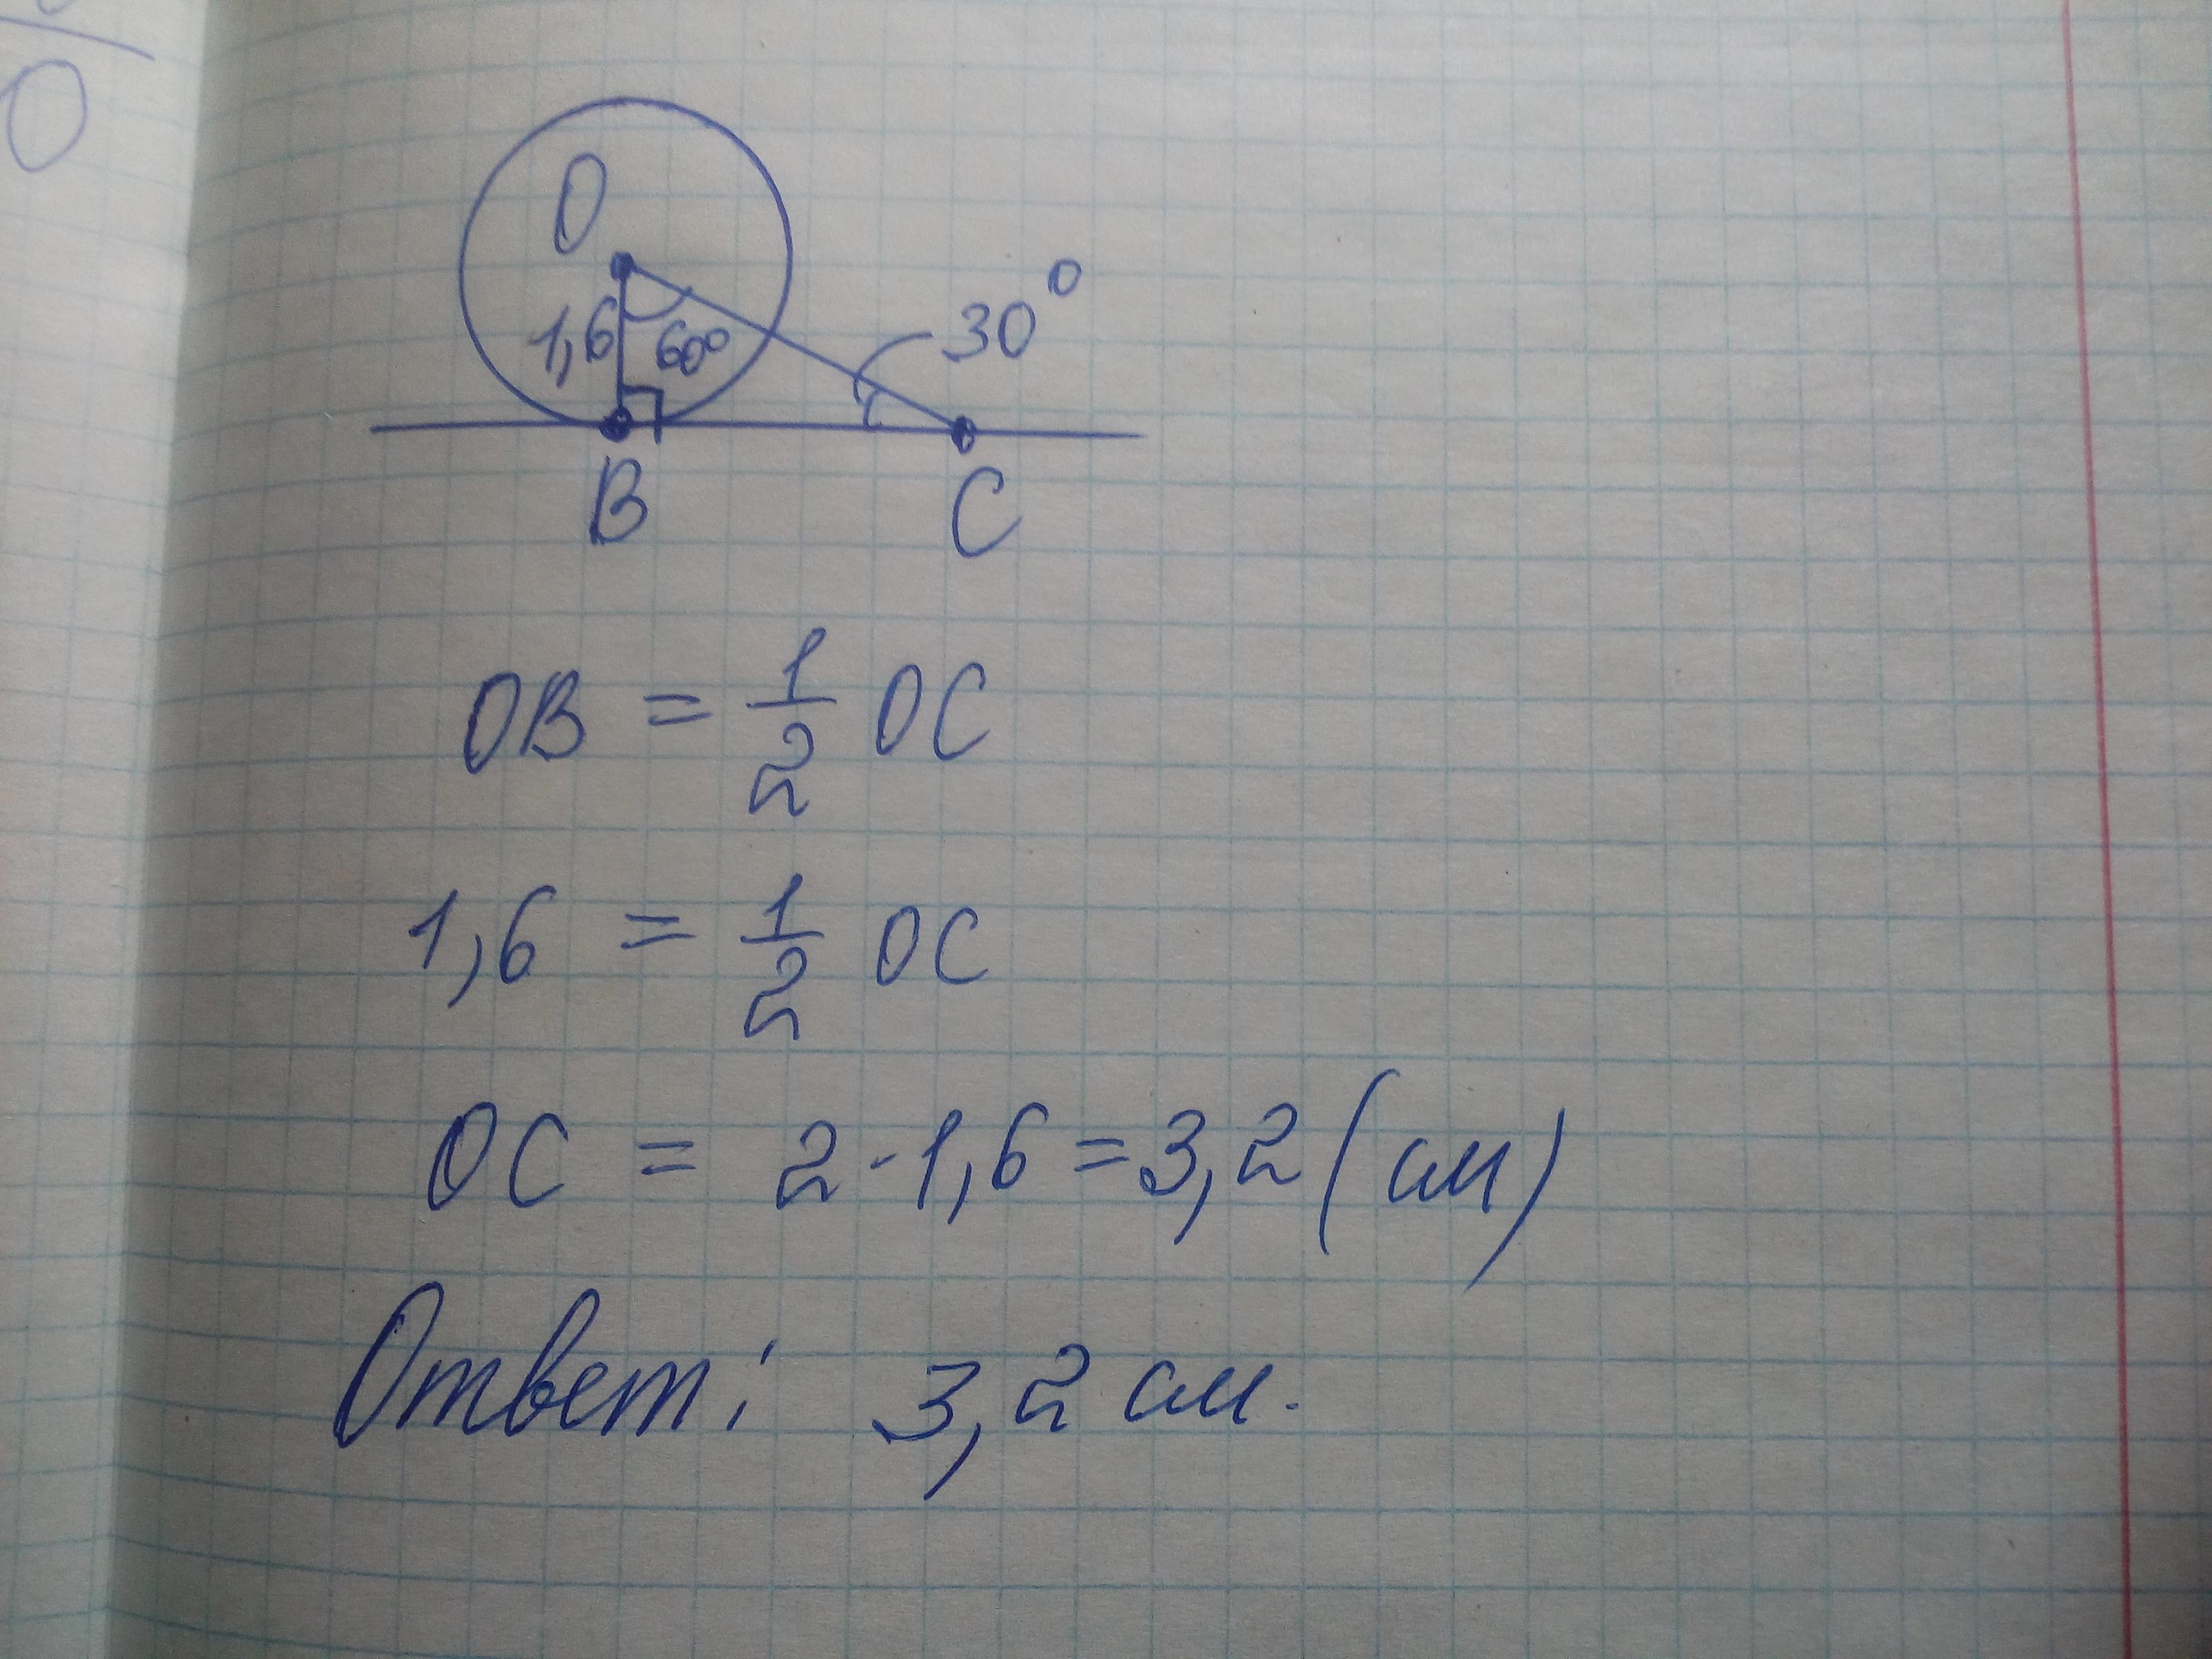 O
1,6 60°
30°
B C
OB = 1/2 OC
1,6 = 1/2 OC
OC = 2·1,6=3,2(см)
Ответ: 3,2 см.